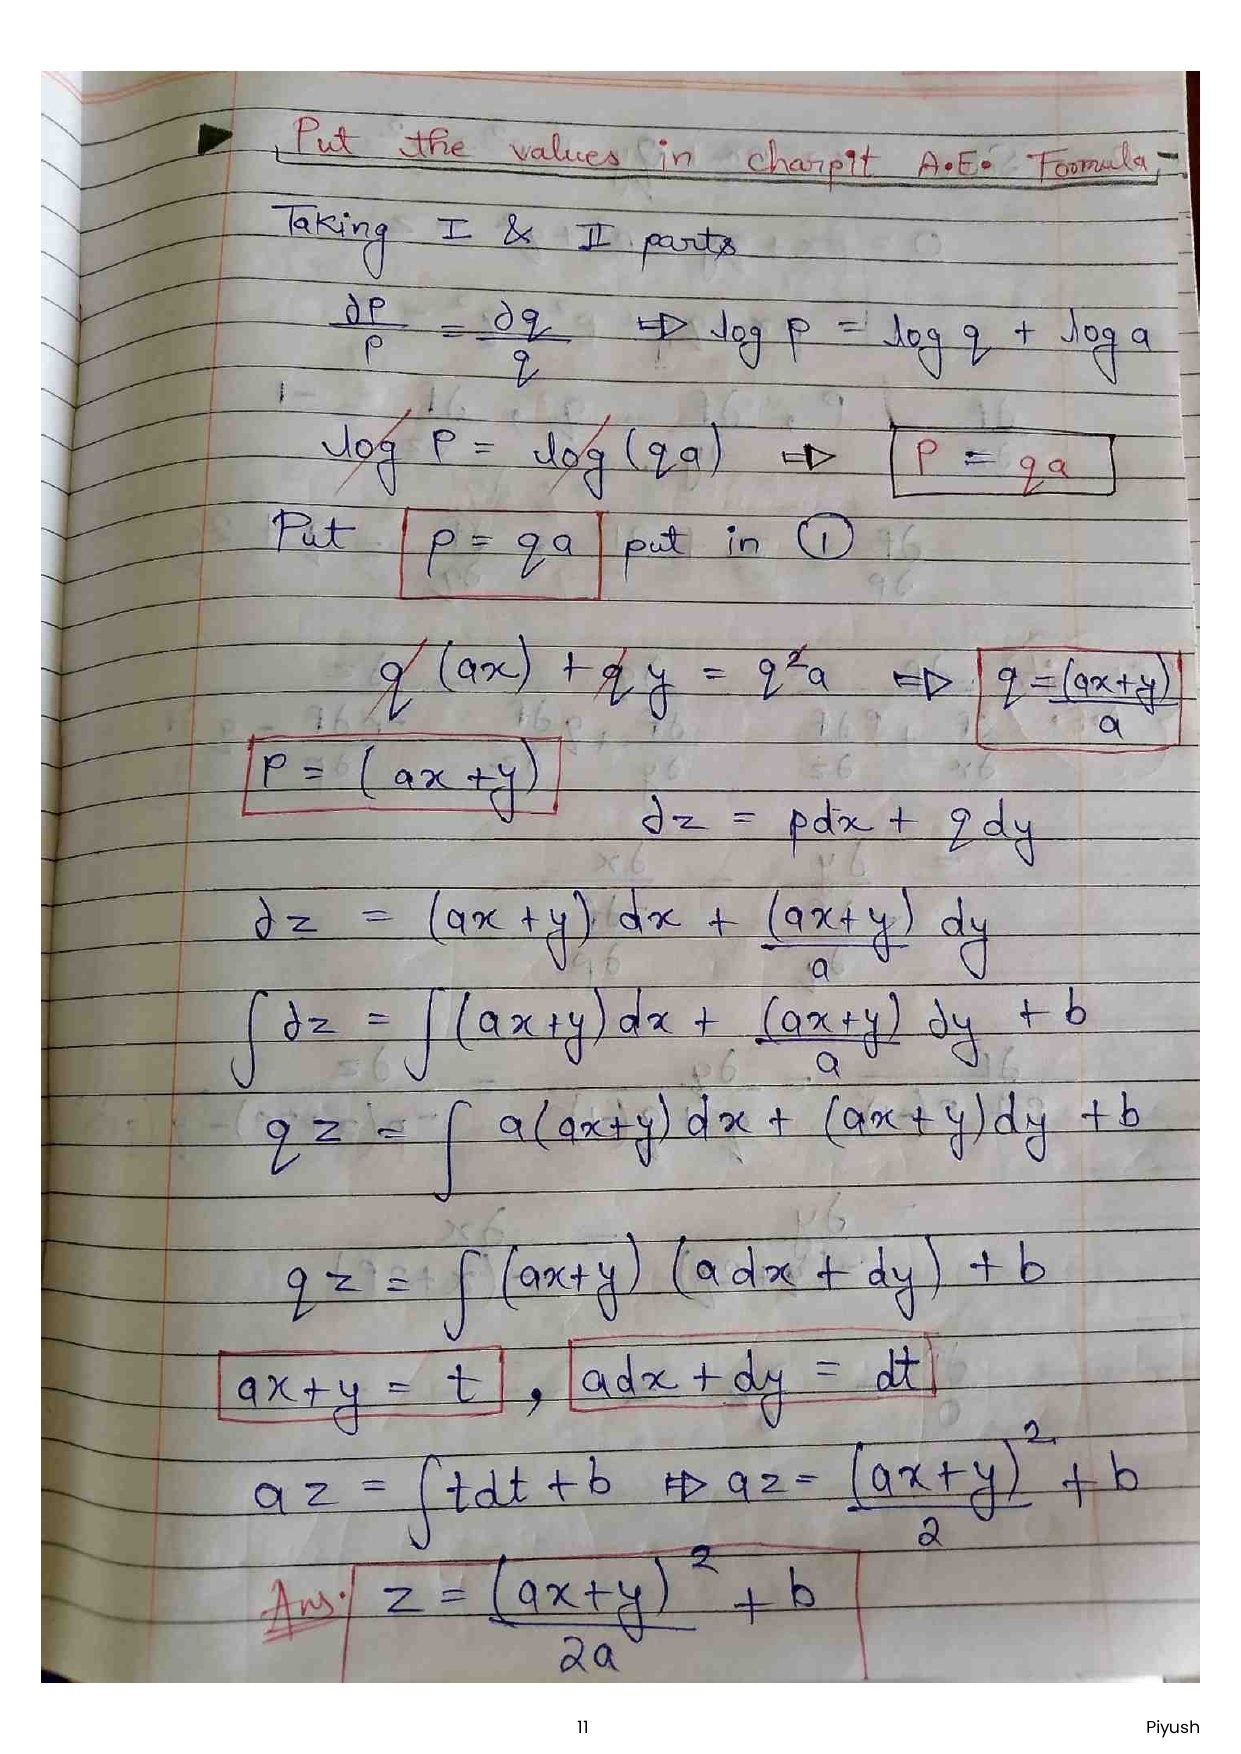 Put the values in charpit A.E. Formula,-
Taking I & II parts
∂P/P = ∂q/q ⇒ log p = log q + log a
log P = log (qa) ⇒ P = qa
Put p = qa put in ①
q (ax) + q y = q²a ⇒ q = (ax+y)/a
P = (ax+y)
∂z = pdx + q dy
∂z = (ax+y) dx + (ax+y)/a dy
∫∂z = ∫(ax+y) dx + (ax+y)/a dy + b
qz = ∫ a(ax+y) dx + (ax+y) dy + b
qz = ∫ (ax+y) (adx + dy) + b
ax+y = t , adx + dy = dt
az = ∫tdt + b ⇒ az = (ax+y)²/2 + b
Ans. z = (ax+y)²/2a + b
11
Piyush